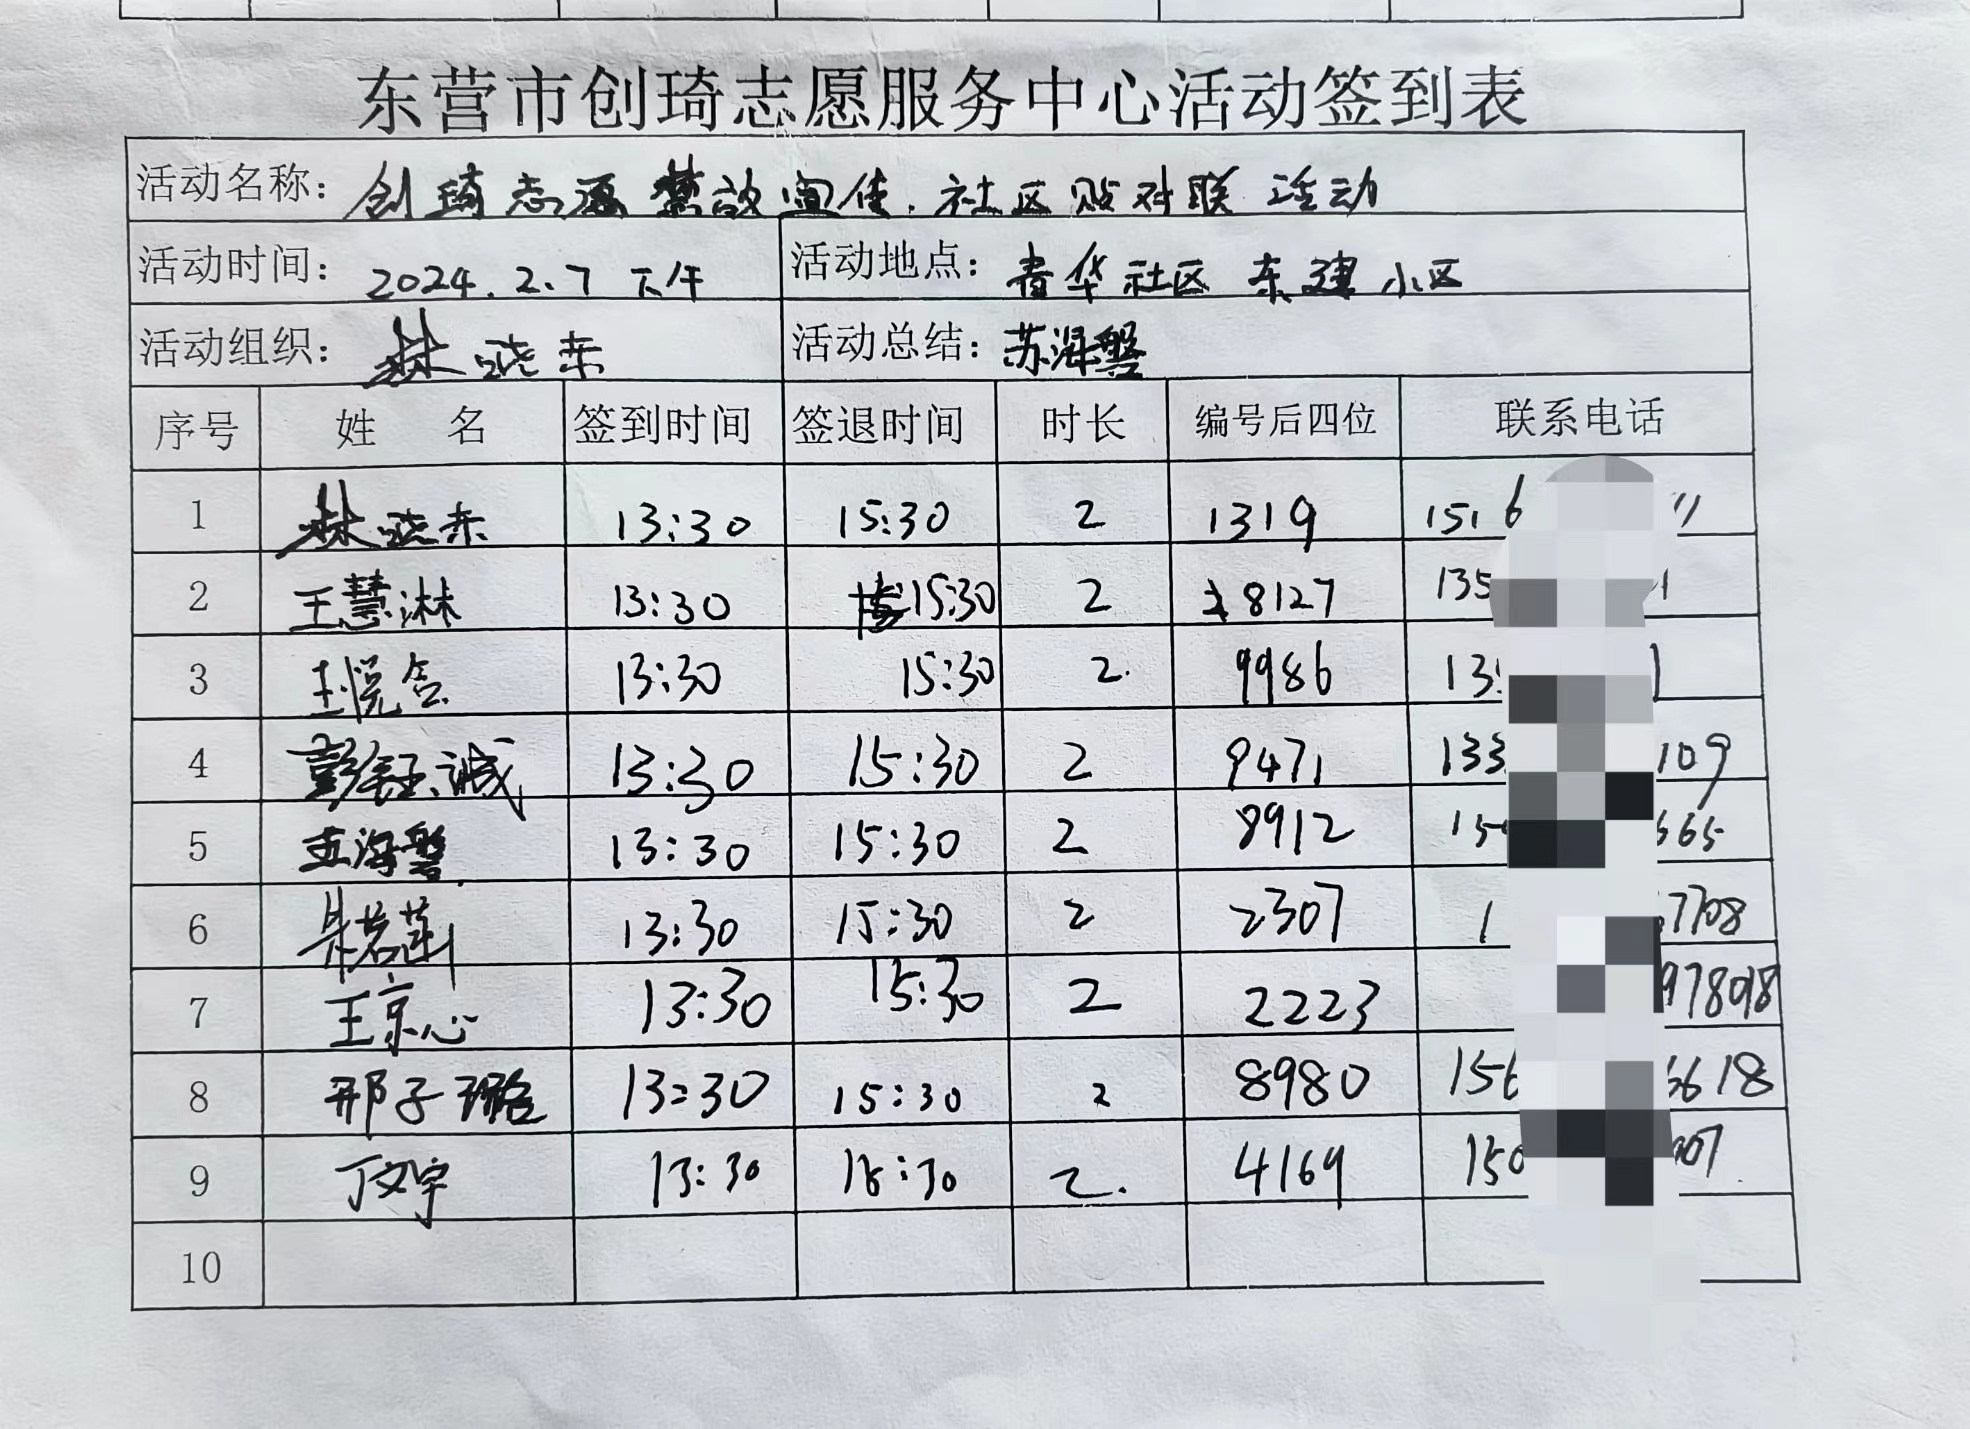 东营市创琦志愿服务中心活动签到表
活动名称：创琦志愿禁放宣传.社区贴对联活动
活动时间：2024.2.7下午 活动地点：青华社区 东建小区
活动组织：林晓东 活动总结：苏海磐
序号 姓名 签到时间 签退时间 时长 编号后四位 联系电话
1 林晓东 13:30 15:30 2 1319 1516
2 王慧淋 13:30 15:30 2 8127 135
3 王悦含 13:30 15:30 2. 9986 13
4 彭钰诚 13:30 15:30 2 9471 133 109
5 13:30 15:30 2 8912 15 665
6 13:30 15:30 2 2307 1 7708
7 王京心 13:30 15:30 2 2223 978098
8 邢子璐 13:30 15:30 2 8980 156 6618
9 丁文宇 13:30 15:30 2. 4169 150 007
10